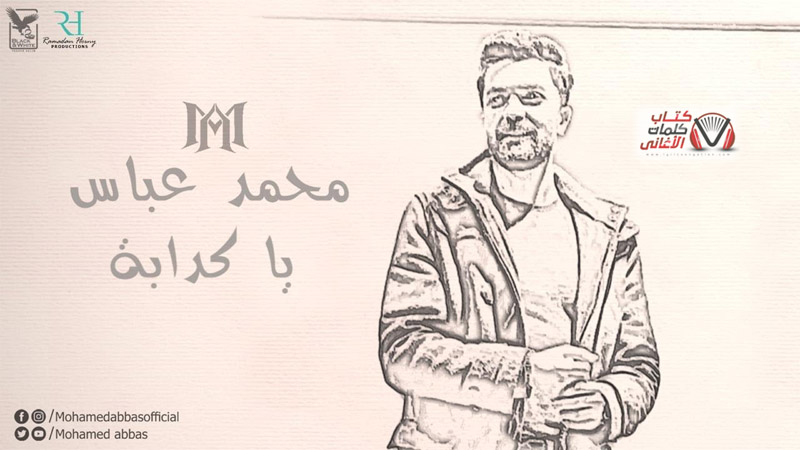 BLACK
&WHITE
RH
Ramadan Husny
PRODUCTIONS
MA
محمد عباس
يا كدابة
كتاب
كلمات
الأغاني
/Mohamedabbasofficial
/Mohamed abbas